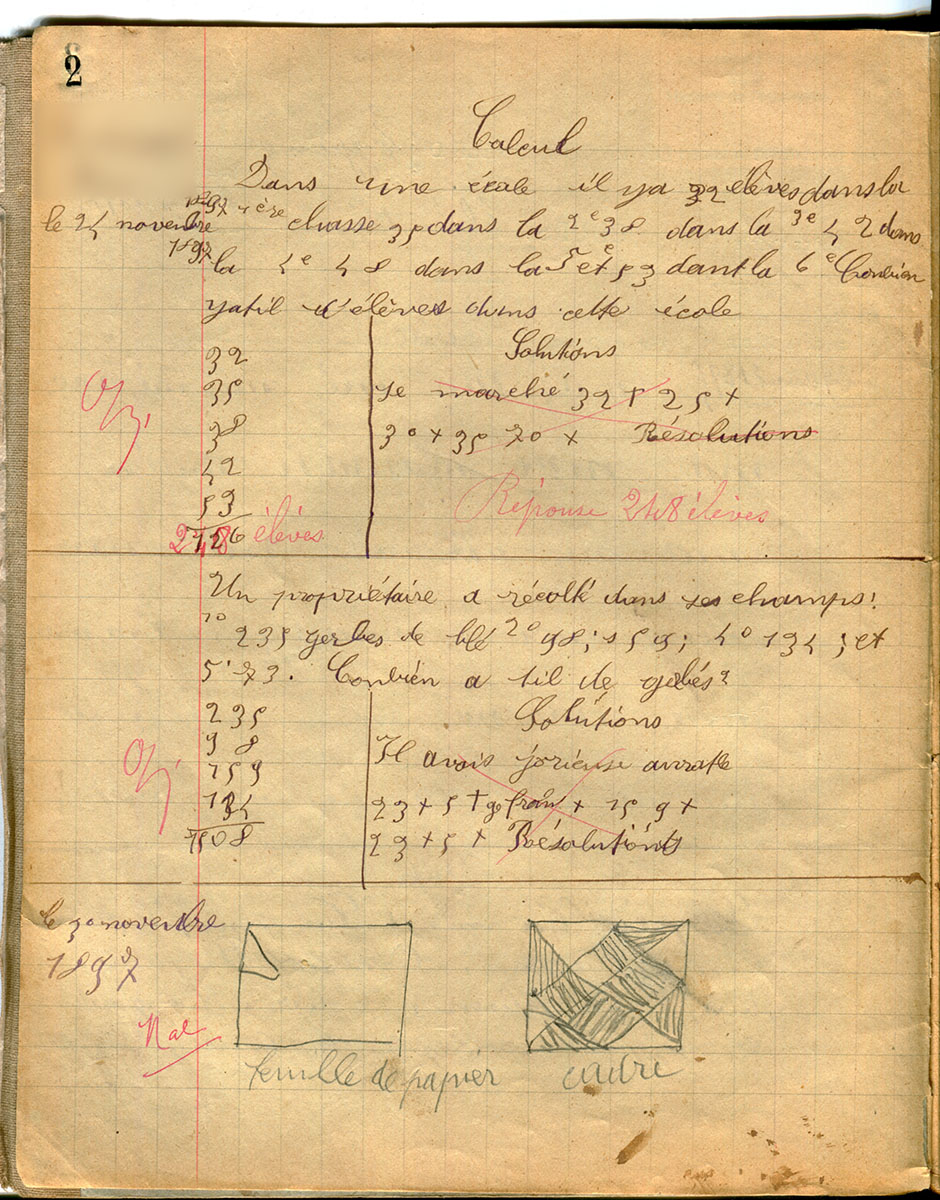 2
Calcul
Dans une école il y a 32 élèves dans la
le 24 novenbre
1897
1ère chasse 35 dans la 2e 38 dans la 3e 42 dans
la 4e 48 dans la 5e et 53 dant la 6e Conbien
yatil d'élèves dans cette école
32
35
38
42
53
248 élévés
Solutions
Le marché 32 + 25 +
30 + 35 20 + Résolutions
Réponse 248 élèves
Un propriétaire a récolté dans ses champs:
1o 235 gerbes de blé 2o 98; 159; 4o 134; et
5° 73. Conbién a til de gebés?
235
98
159
134
Solutions
Il avais
23 + 5 + + 159 +
23 + 5 + Résolutions
le 30 novenbre
1897
Mal
feuille de papier
cadre